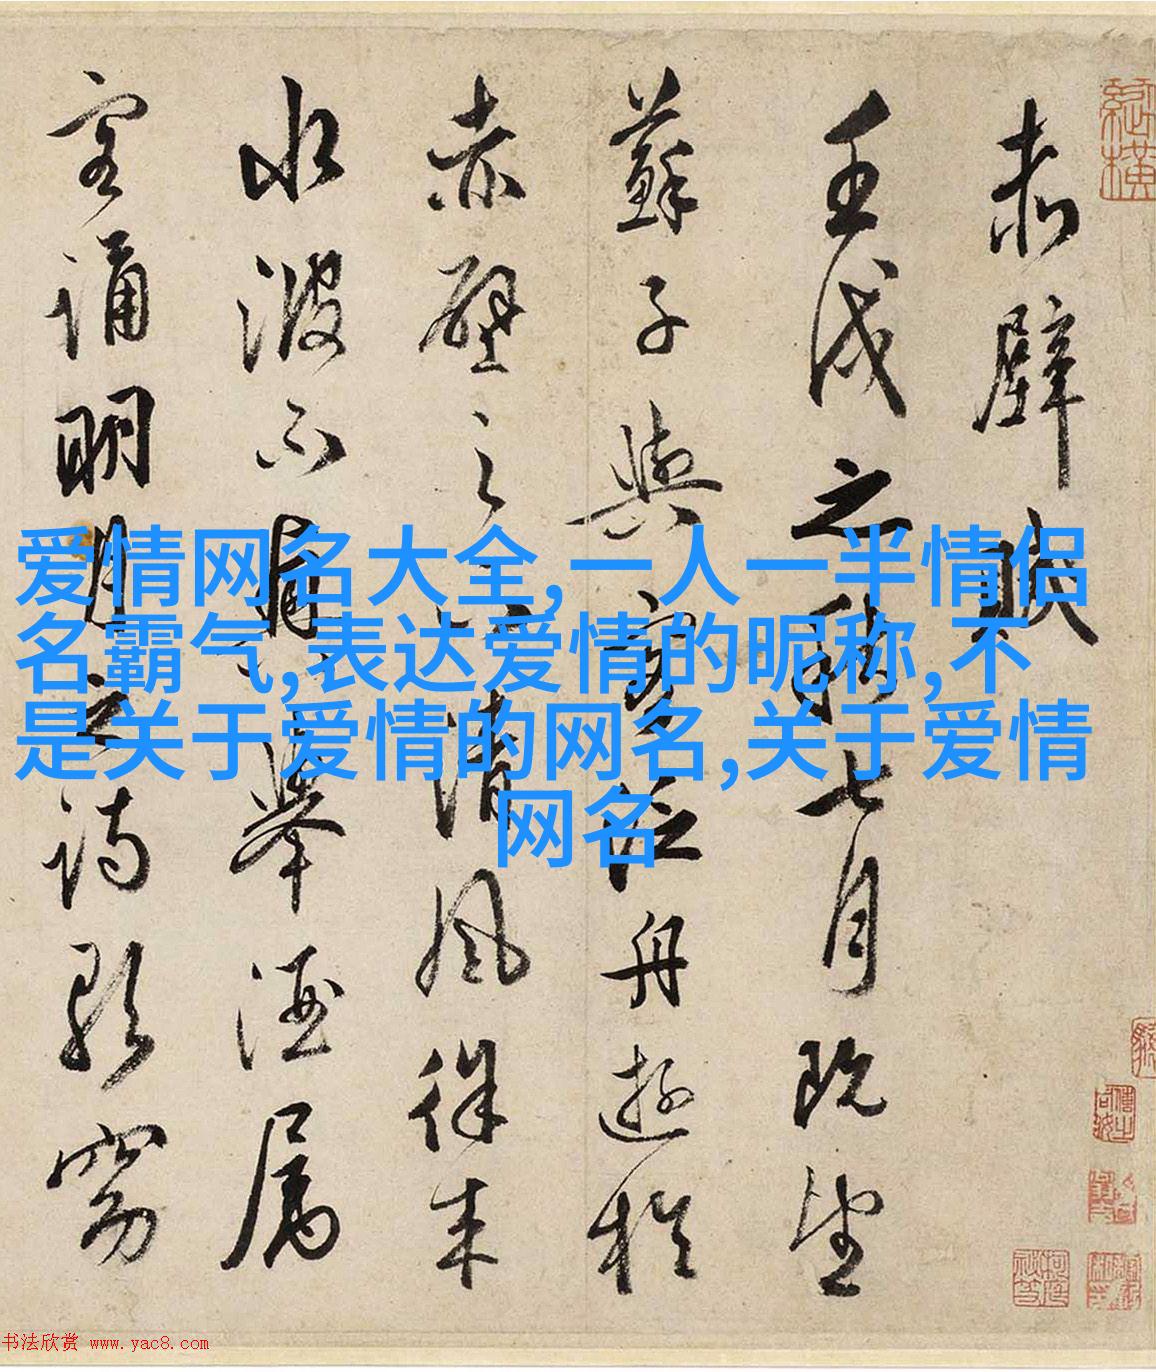 爱情网名大全,一人一半情侣
名霸气,表达爱情的昵称,不
是关于爱情的网名,关于爱情
网名
赤壁賦
壬戌之秋七月既望
蘇子與客泛舟遊於
赤壁之下清風徐来
水波不興舉酒属
客誦明月之詩歌窈
书法欣赏 www.yac8.com